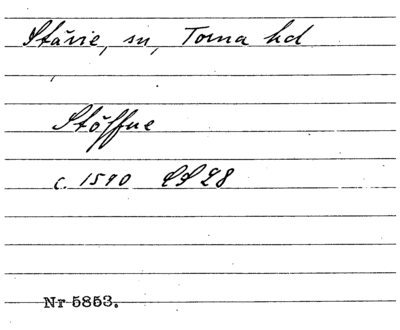 Stävie, sn, Torna hd
Stöffue
c. 1590 LL 28
Nr 5853.